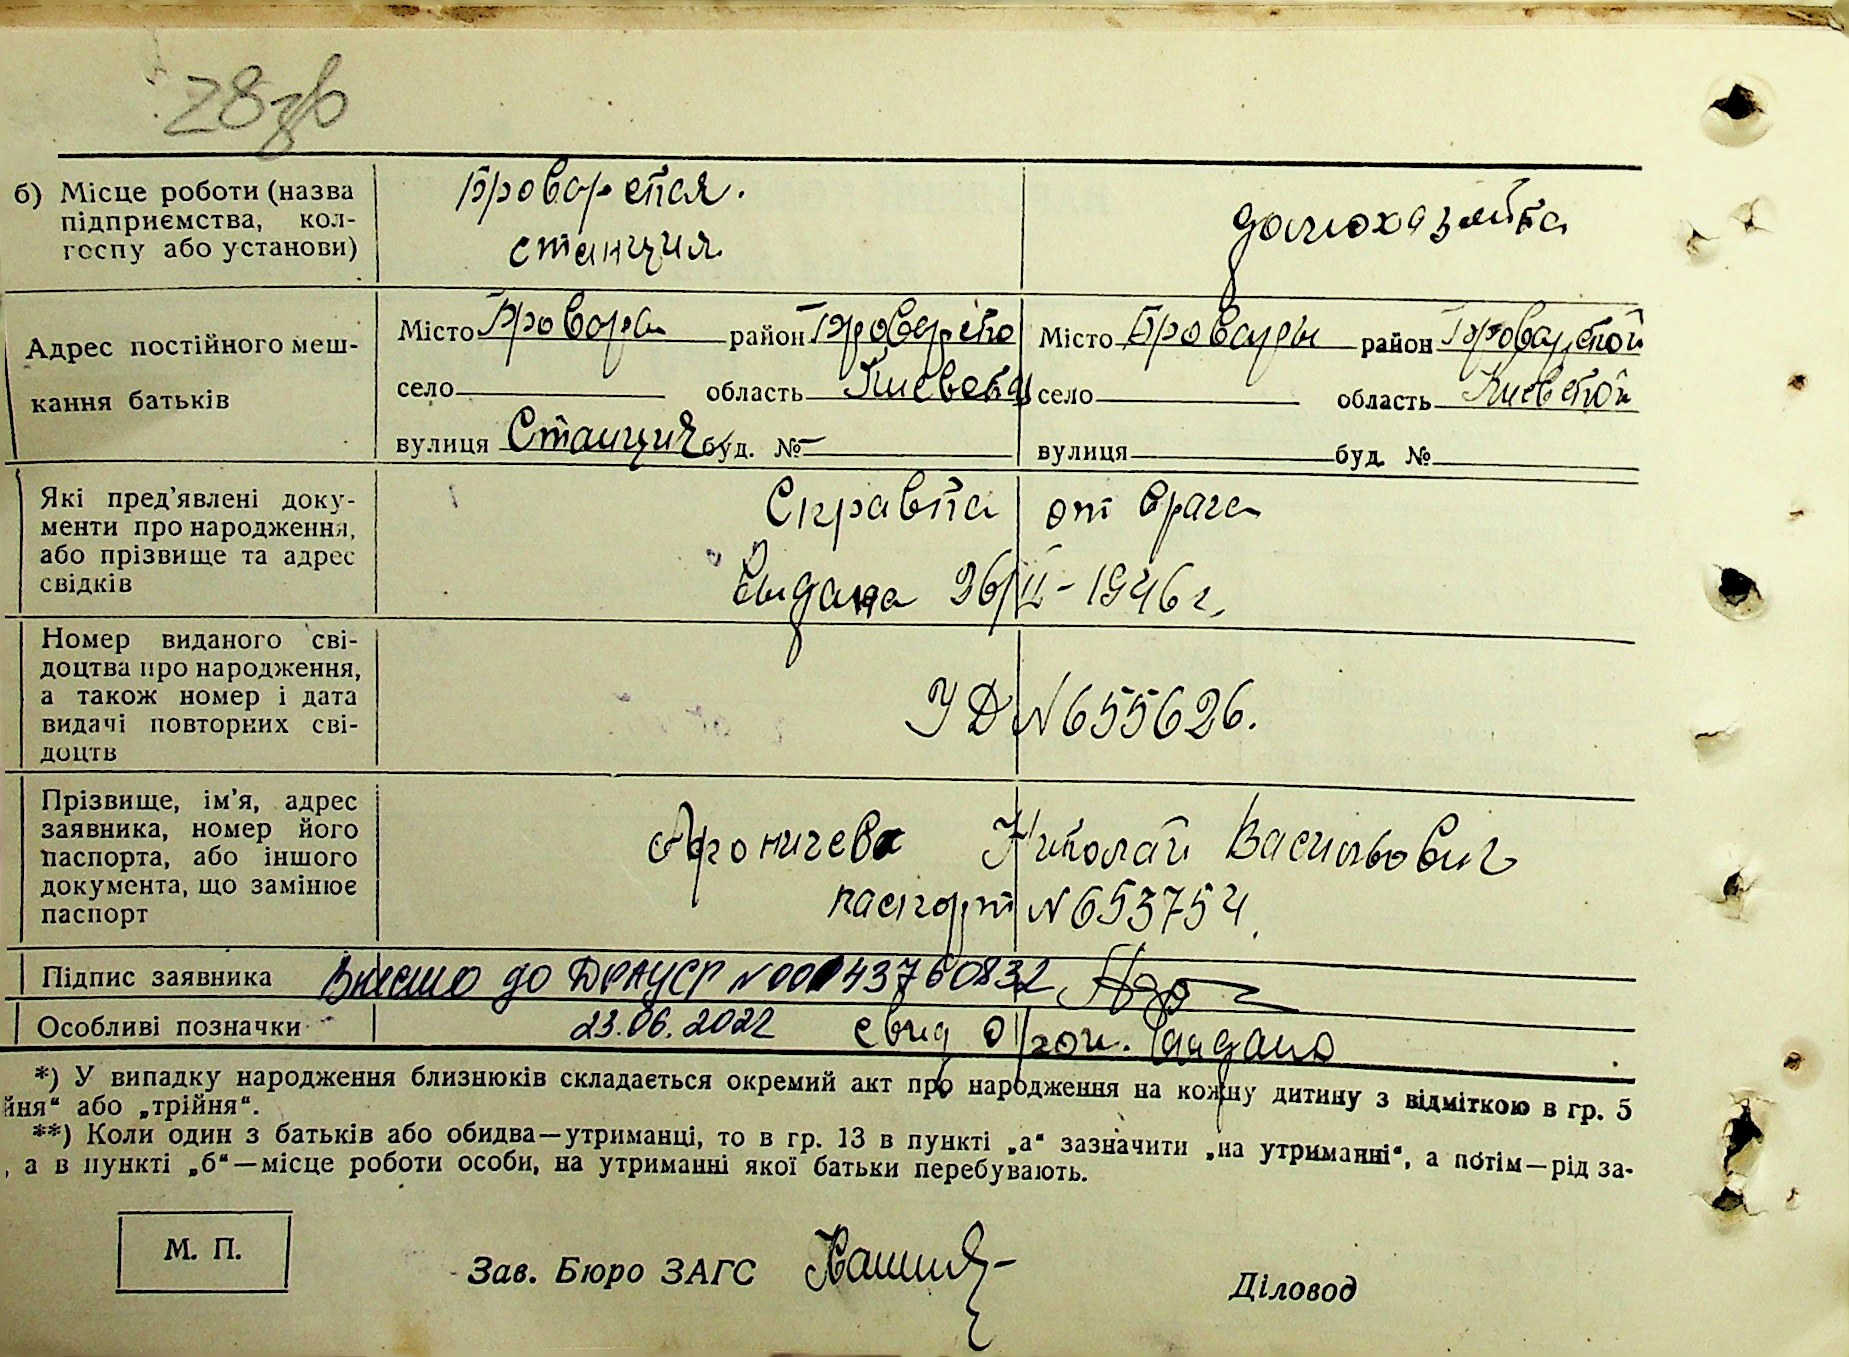 28
б) Місце роботи (назва підприємства, кол-госпу або установи)
Броварская. станция
домохазяйка
Адрес постійного меш-кання батьків
Місто Бровари район Броварско
село область Киевска
вулиця Станция буд. № —
Місто Бровары район Броварской
село область Киевской
вулиця буд. №
Які пред'явлені доку-
менти про народження,
або прізвище та адрес
свідків
Справка от врача
Выдана 26/II - 1946 г.
Номер виданого сві-
доцтва про народження,
а також номер і дата
видачі повторних сві-
доцтв
УД N 655626.
Прізвище, ім'я, адрес
заявника, номер його
паспорта, або іншого
документа, що замінює
паспорт
Николай Васильович
паспорт N 653754
Підпис заявника Внесено до ДРАЦСГ N 00143760832
Особливі позначки 23.06.2022 свид о
*) У випадку народження близнюків складається окремий акт про народження на кожну дитину з відміткою в гр. 5
йня“ або „трійня“.
**) Коли один з батьків або обидва—утриманці, то в гр. 13 в пункті „а“ зазначити „на утриманні“, а потім—рід за-
, а в пункті „б“—місце роботи особи, на утриманні якої батьки перебувають.
М. П.
Зав. Бюро ЗАГС
Діловод